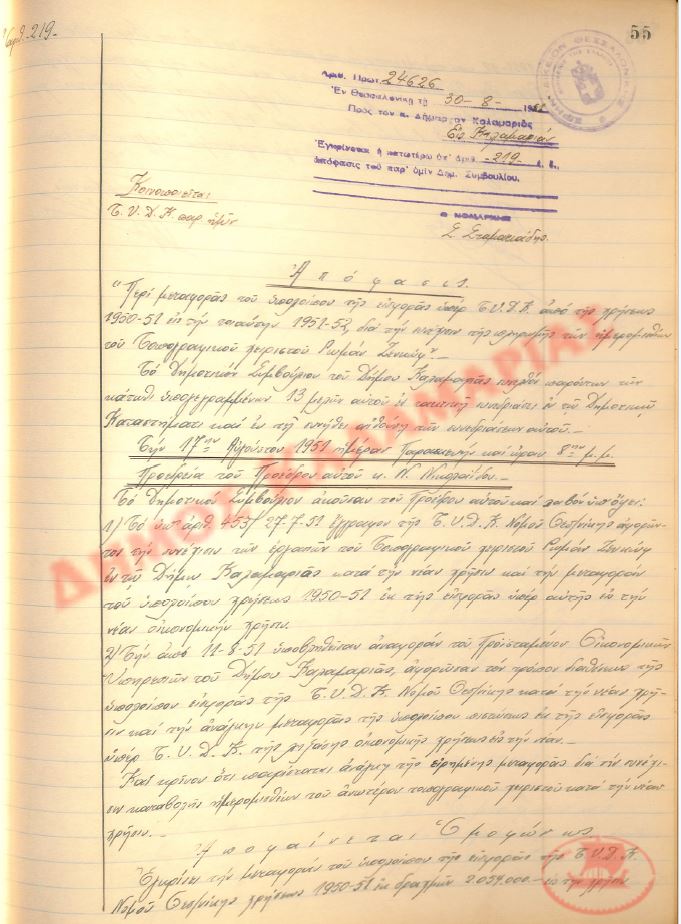 Ἀριθ. 219.
55
Ἀριθ. Πρωτ. 24626
Ἐν Θεσσαλονίκῃ τῇ 30-8-1951
Πρὸς τὸν κ. Δήμαρχον Καλαμαριᾶς
Εἰς Καλαμαριάν
Ἐγκρίνεται ἡ κατωτέρω ὑπ' ἀριθ. -219- ἀ. ἔ.
ἀπόφασις τοῦ παρ' ὑμῖν Δημ. Συμβουλίου.
Ὁ ΝΟΜΑΡΧΗΣ
Σ. Σταματιάδης.
Κοινοποιεῖται
Τ.Υ.Δ.Κ. παρ' ἡμῖν
Ἀπόφασις.
"Περὶ μεταφορᾶς τοῦ ὑπολοίπου τῆς εἰσφορᾶς ὑπὲρ Τ.Υ.Δ.Κ. ἀπὸ τῆς χρήσεως
1950-51 εἰς τὴν τοιαύτην 1951-52, διὰ τὴν συνέχισιν τῆς πληρωμῆς τῶν ἡμερομισθίων
τοῦ Τοπογραφικοῦ χειριστοῦ"
Τὸ Δημοτικὸν Συμβούλιον τοῦ Δήμου Καλαμαριᾶς συνελθὸν παρόντων τῶν
κάτωθι ὑπογεγραμμένων 13 μελῶν αὐτοῦ ἐν τακτικῇ συνεδριάσει ἐν τῷ Δημοτικῷ
Καταστήματι καὶ ἐν τῇ συνήθει αἰθούσῃ τῶν συνεδριάσεων αὐτοῦ.-
Τὴν 17ην Αὐγούστου 1951 ἡμέραν Παρασκευὴν καὶ ὥραν 8ην μ.μ.
Προεδρεία τοῦ Προέδρου αὐτοῦ κ. Ν. Νικολαΐδου.-
Τὸ Δημοτικὸν Συμβούλιον ἀκοῦσαν τοῦ Προέδρου αὐτοῦ καὶ λαβὸν ὑπ' ὄψει:
1) Τὸ ὑπ' ἀριθ. 453/27-7-51 ἔγγραφον τῆς Τ.Υ.Δ.Κ. Νομοῦ Θεσ/νίκης ἀφορῶν-
τος τὴν συνέχισιν τῶν ἐργασιῶν τοῦ Τοπογραφικοῦ χειριστοῦ
ἐν τῷ Δήμῳ Καλαμαριᾶς κατὰ τὴν νέαν χρῆσιν καὶ τὴν μεταφορὰν
τοῦ ὑπολοίπου χρήσεως 1950-51 ἐκ τῆς εἰσφορᾶς ὑπὲρ αὐτῆς εἰς τὴν
νέαν οἰκονομικὴν χρῆσιν.
2) Τὴν ἀπὸ 11-8-51 ὑποβληθεῖσαν ἀναφορὰν τοῦ Προϊσταμένου Οἰκονομικῶν
Ὑπηρεσιῶν τοῦ Δήμου Καλαμαριᾶς, ἀφορῶσαν τὸν τρόπον διαθέσεως τῆς
ὑπολοίπου εἰσφορᾶς τῆς Τ.Υ.Δ.Κ. Νομοῦ Θεσ/νίκης κατὰ τὴν νέαν χρῆ-
σιν καὶ τὴν ἀνάγκην μεταφορᾶς τῆς ὑπολοίπου πιστώσεως ἐκ τῆς εἰσφορᾶς
ὑπὲρ Τ.Υ.Δ.Κ. τῆς ληξάσης οἰκονομικῆς χρήσεως εἰς τὴν νέαν.-
Καὶ κρῖνον ὅτι παρίσταται ἀνάγκη τῆς εἰρημένης μεταφορᾶς διὰ τὴν συνέχι-
σιν καταβολῆς ἡμερομισθίων τοῦ ἀνωτέρου τοπογραφικοῦ χειριστοῦ κατὰ τὴν νέαν
χρῆσιν.-
Ἀποφαίνεται Ὁμοφώνως
Ἐγκρίνει τὴν μεταφορὰν τοῦ ὑπολοίπου τῆς εἰσφορᾶς τῆς Τ.Υ.Δ.Κ.
Νομοῦ Θεσ/νίκης χρήσεως 1950-51 ἐκ δραχμῶν 2.054.000- εἰς τὴν χρῆσιν
ΔΗΜΟΣ ΚΑΛΑΜΑΡΙΑΣ